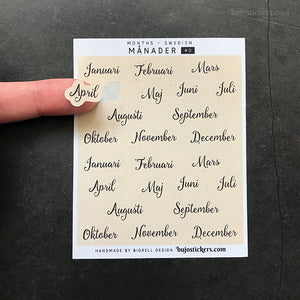 bujostickers.com
MONTHS – SWEDISH
MÅNADER 40
Januari Februari Mars
April Maj Juni Juli
Augusti September
Oktober November December
Januari Februari Mars
April Maj Juni Juli
Augusti September
Oktober November December
HANDMADE BY BIGRELL DESIGN bujostickers.com